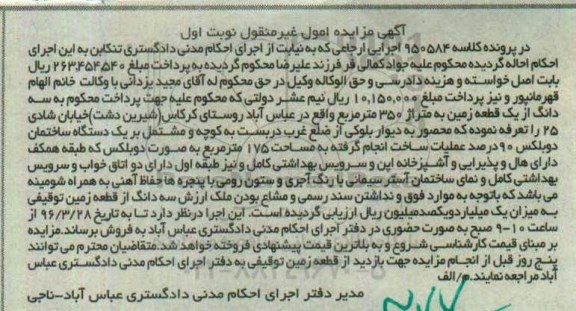 آگهی مزایده اموال غیرمنقول نوبت اول
در پرونده کلاسه ۹۵۰۵۸۴ اجرایی ارجاعی که به نیابت از اجرای احکام مدنی دادگستری تنکابن به این اجرای
احکام احاله گردیده محکوم علیه جواد کمالی فر فرزند علیرضا محکوم گردیده به پرداخت مبلغ ۲۶۳,۴۵۴,۵۴۰ ریال
بابت اصل خواسته و هزینه دادرسی و حق الوکاله وکیل در حق محکوم له آقای مجید یزدانی با وکالت خانم الهام
قهرمانپور و نیز پرداخت مبلغ ۱۰,۱۵۰,۰۰۰ ریال نیم عشر دولتی که محکوم علیه جهت پرداخت محکوم به سه
دانگ از یک قطعه زمین به متراژ ۳۵۰ مترمربع واقع در عباس آباد روستای کرکاس(شیرین دشت)خیابان شادی
۲۵ را تعرفه نموده که محصور به دیوار بلوکی از ضلع غرب دربست به کوچه و مشتمل بر یک دستگاه ساختمان
دوبلکس ۹۰درصد عملیات ساخت انجام گرفته به مساحت ۱۷۵ مترمربع به صورت دوبلکس که طبقه همکف
دارای هال و پذیرایی و آشپزخانه اپن و سرویس بهداشتی کامل و نیز طبقه اول دارای دو اتاق خواب و سرویس
بهداشتی کامل و نمای ساختمان آستر سیمانی با رنگ آجری و ستون رومی با پنجره ها حفاظ آهنی به همراه شومینه
می باشد که باتوجه به موارد فوق و نداشتن سند رسمی و مشاع بودن ملک ارزش سه دانگ از قطعه زمین توقیفی
به میزان یک میلیاردویکصدمیلیون ریال ارزیابی گردیده است. این اجرا درنظر دارد تا به تاریخ ۹۶/۳/۲۸ از
ساعت ۱۰-۹ صبح به صورت حضوری در دفتر اجرای احکام مدنی دادگستری عباس آباد به فروش برساند.مزایده
بر مبنای قیمت کارشناسی شروع و به بالاترین قیمت پیشنهادی فروخته خواهد شد.متقاضیان محترم می توانند
پنج روز قبل از انجام مزایده جهت بازدید از قطعه زمین توقیفی به دفتر اجرای احکام مدنی دادگستری عباس
آباد مراجعه نمایند.م/الف
مدیر دفتر اجرای احکام مدنی دادگستری عباس آباد-ناجی